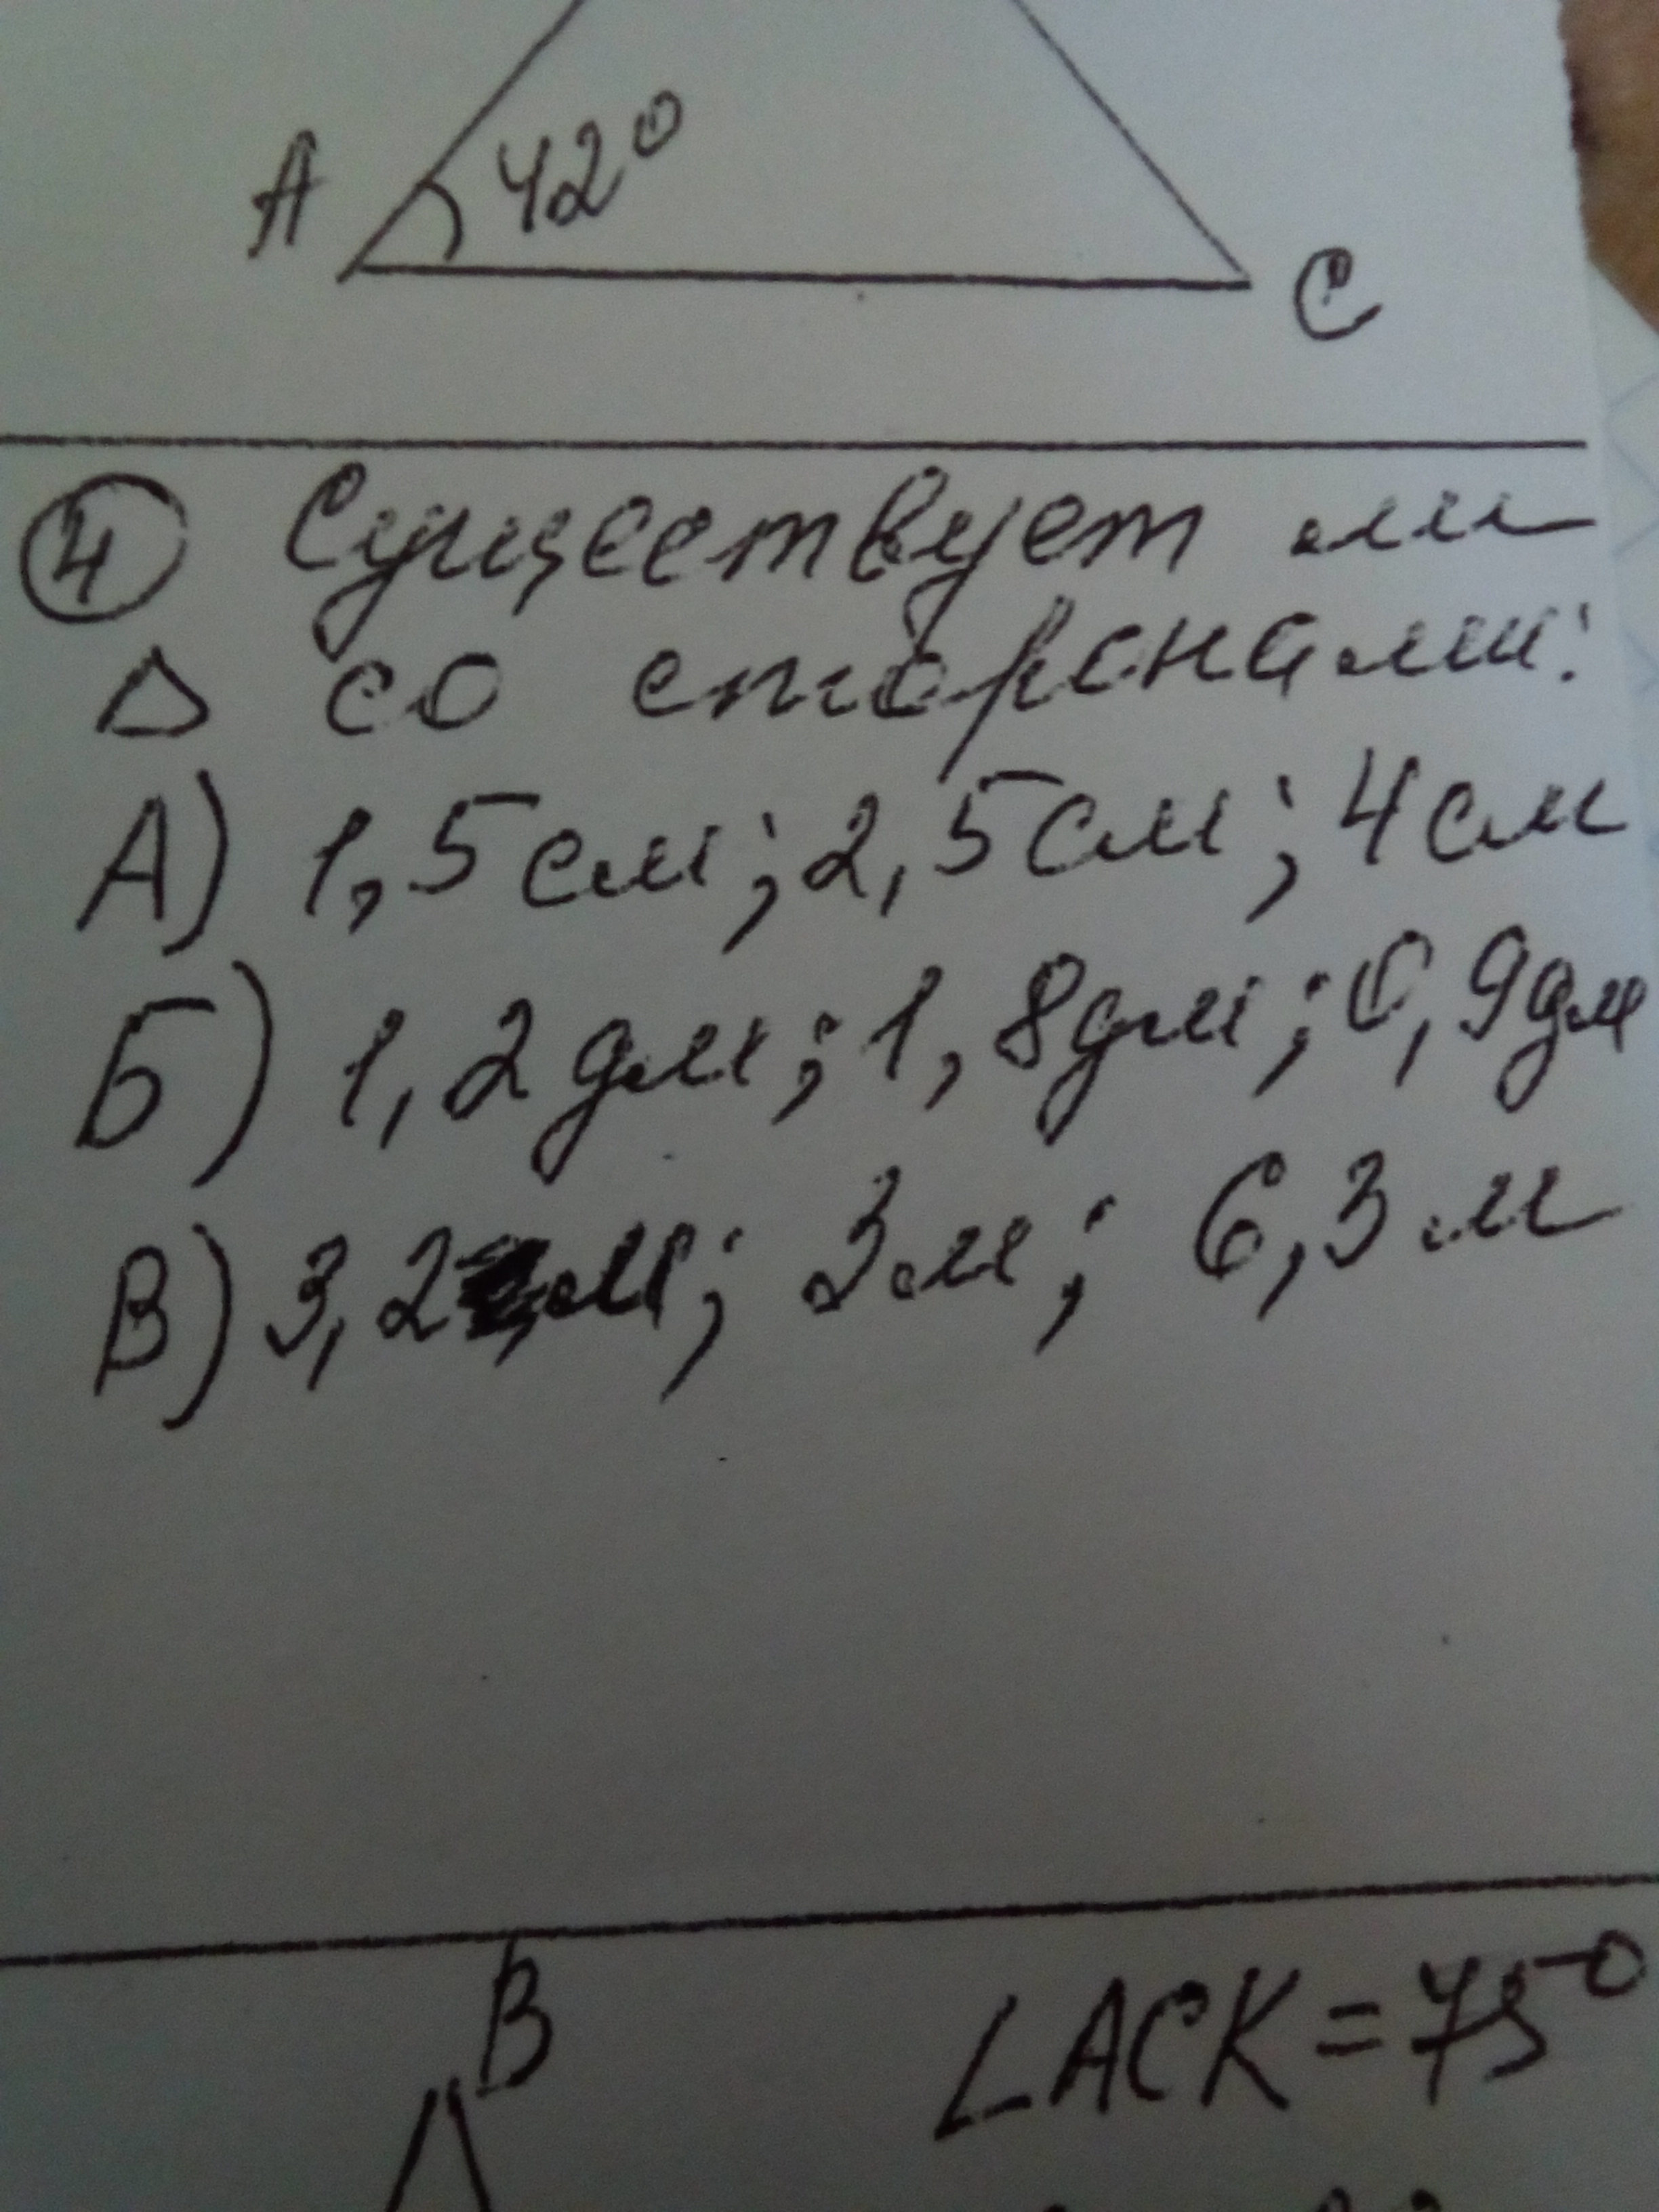 A 42° C
④ Существует ли
△ со сторонами:
А) 1,5 см; 2,5 см; 4 см
Б) 1,2 дм; 1,8 дм; 0,9 дм
В) 3,2 м; 3 м; 6,3 м
B
∠ACK = 75°